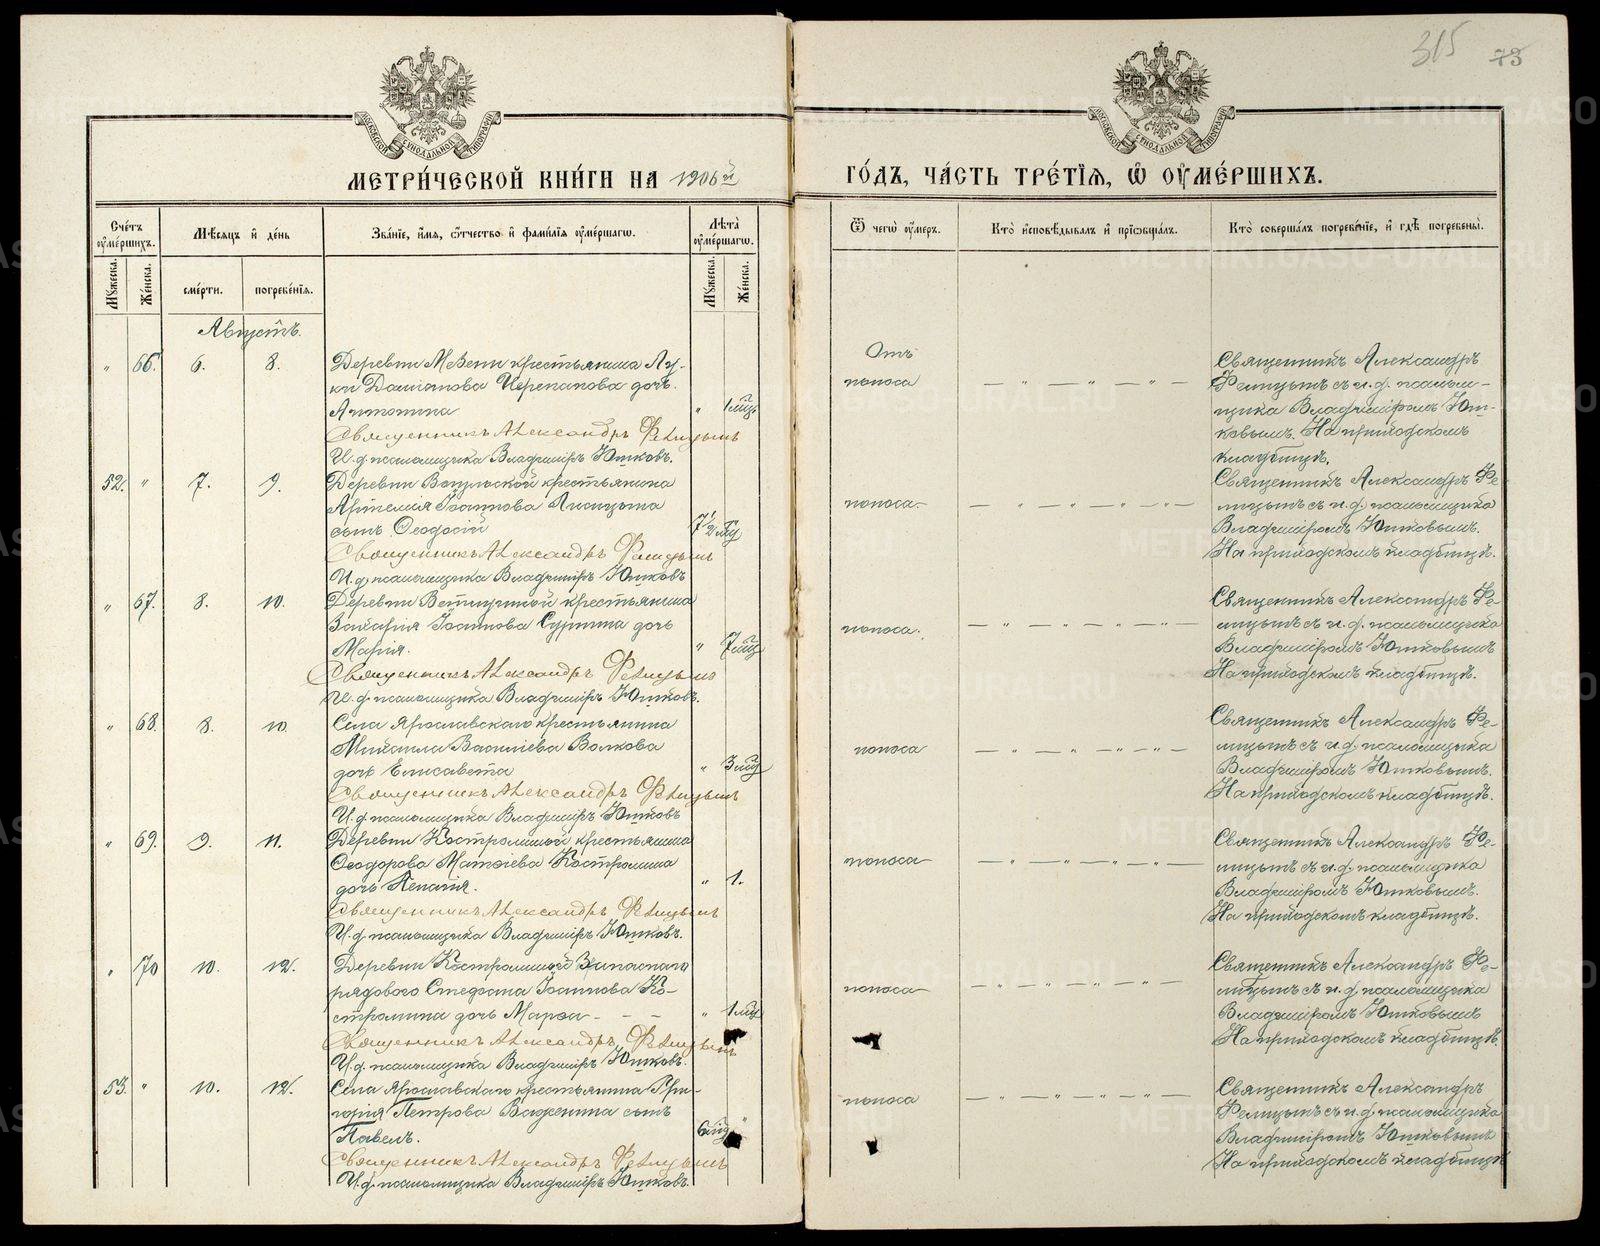 315 73
МОСКОВСКОЙ СѴНОДАЛЬНОЙ ТИПОГРАФІИ
МОСКОВСКОЙ СѴНОДАЛЬНОЙ ТИПОГРАФІИ
МЕТРИ́ЧЕСКОЙ КНИ́ГИ НА 1906й
ГО́ДЪ, ЧА́СТЬ ТРЕ́ТІѦ, Ѡ ОУМЕ́РШИХЪ.
Сче́тъ оуме́ршихъ.
Мѣсѧцъ и день
Зва́нїе, и҆́мѧ, ѻ҆́тчество и҆ фами́лїѧ оуме́ршагѡ.
Лѣта̀ оуме́ршагѡ.
Ѿ чегѡ̀ оу҆́меръ.
Кто̀ и҆сповѣ́дывалъ и҆ прїѡбща́лъ.
Кто̀ соверша́лъ погребе́нїе, и҆ гдѣ̀ погребены̀.
Мꙋ́жеска.
Же́нска.
сме́рти.
погребе́нїѧ.
Мꙋ́жеска.
Же́нска.
Августъ.
" 66. 6. 8. Деревни крестьянина Лу-
ки Черепанова дочь
Антонина " 1 мѣц
Священникъ Александръ Фелицынъ
И. д. псаломщика Владиміръ Юшковъ.
Отъ
поноса
Священникъ Александръ
Фелицынъ съ и. д. псалом-
щика Владиміромъ Юш-
ковымъ. На приходскомъ
кладбищѣ.
52. " 7. 9. Деревни крестьянина
Артемія Іоаннова Лисицына
сынъ Ѳеодосій 7 1/2 мѣц
Священникъ Александръ Фелицынъ
И. д. псаломщика Владиміръ Юшковъ
поноса
Священникъ Александръ Фе-
лицынъ съ и. д. псаломщика
Владиміромъ Юшковымъ.
На приходскомъ кладбищѣ.
" 67. 8. 10. Деревни крестьянина
Захарія Іоаннова дочь
Марія. " 7 мѣц
Священникъ Александръ Фелицынъ
И. д. псаломщика Владиміръ Юшковъ.
поноса.
Священникъ Александръ Фе-
лицынъ съ и. д. псаломщика
Владиміромъ Юшковымъ
На приходскомъ кладбищѣ.
" 68. 8. 10. Села Ярославскаго крестьянина
Михаила Василіева Волкова
дочь Елисавета " 3 мѣц
Священникъ Александръ Фелицынъ
И. д. псаломщика Владиміръ Юшковъ
поноса
Священникъ Александръ Фе-
лицынъ съ и. д. псаломщика
Владиміромъ Юшковымъ.
На приходскомъ кладбищѣ.
" 69. 9. 11. Деревни Костроминой крестьянина
Ѳеодорова Матѳіева Костромина
дочь . " 1.
Священникъ Александръ Фелицынъ
И. д. псаломщика Владиміръ Юшковъ.
поноса
Священникъ Александръ Фе-
лицынъ съ и. д. псаломщика
Владиміромъ Юшковымъ.
На приходскомъ кладбищѣ.
" 70 10. 12. Деревни Костроминой Запаснаго
рядового Стефана Іоаннова Ко-
стромина дочь Марѳа " 1 мѣц
Священникъ Александръ Фелицынъ
И. д. псаломщика Владиміръ Юшковъ.
поноса
Священникъ Александръ Фе-
лицынъ съ и. д. псаломщика
Владиміромъ Юшковымъ
На приходскомъ кладбищѣ.
53. " 10. 12. Села Ярославскаго крестьянина Гри-
горія Петрова Баженина сынъ
Павелъ. 6 мѣц "
Священникъ Александръ Фелицынъ
И. д. псаломщика Владиміръ Юшковъ.
поноса
Священникъ Александръ
Фелицынъ съ и. д. псаломщика
Владиміромъ Юшковымъ
На приходскомъ кладбищѣ
METRIKI.GASO-URAL.RU